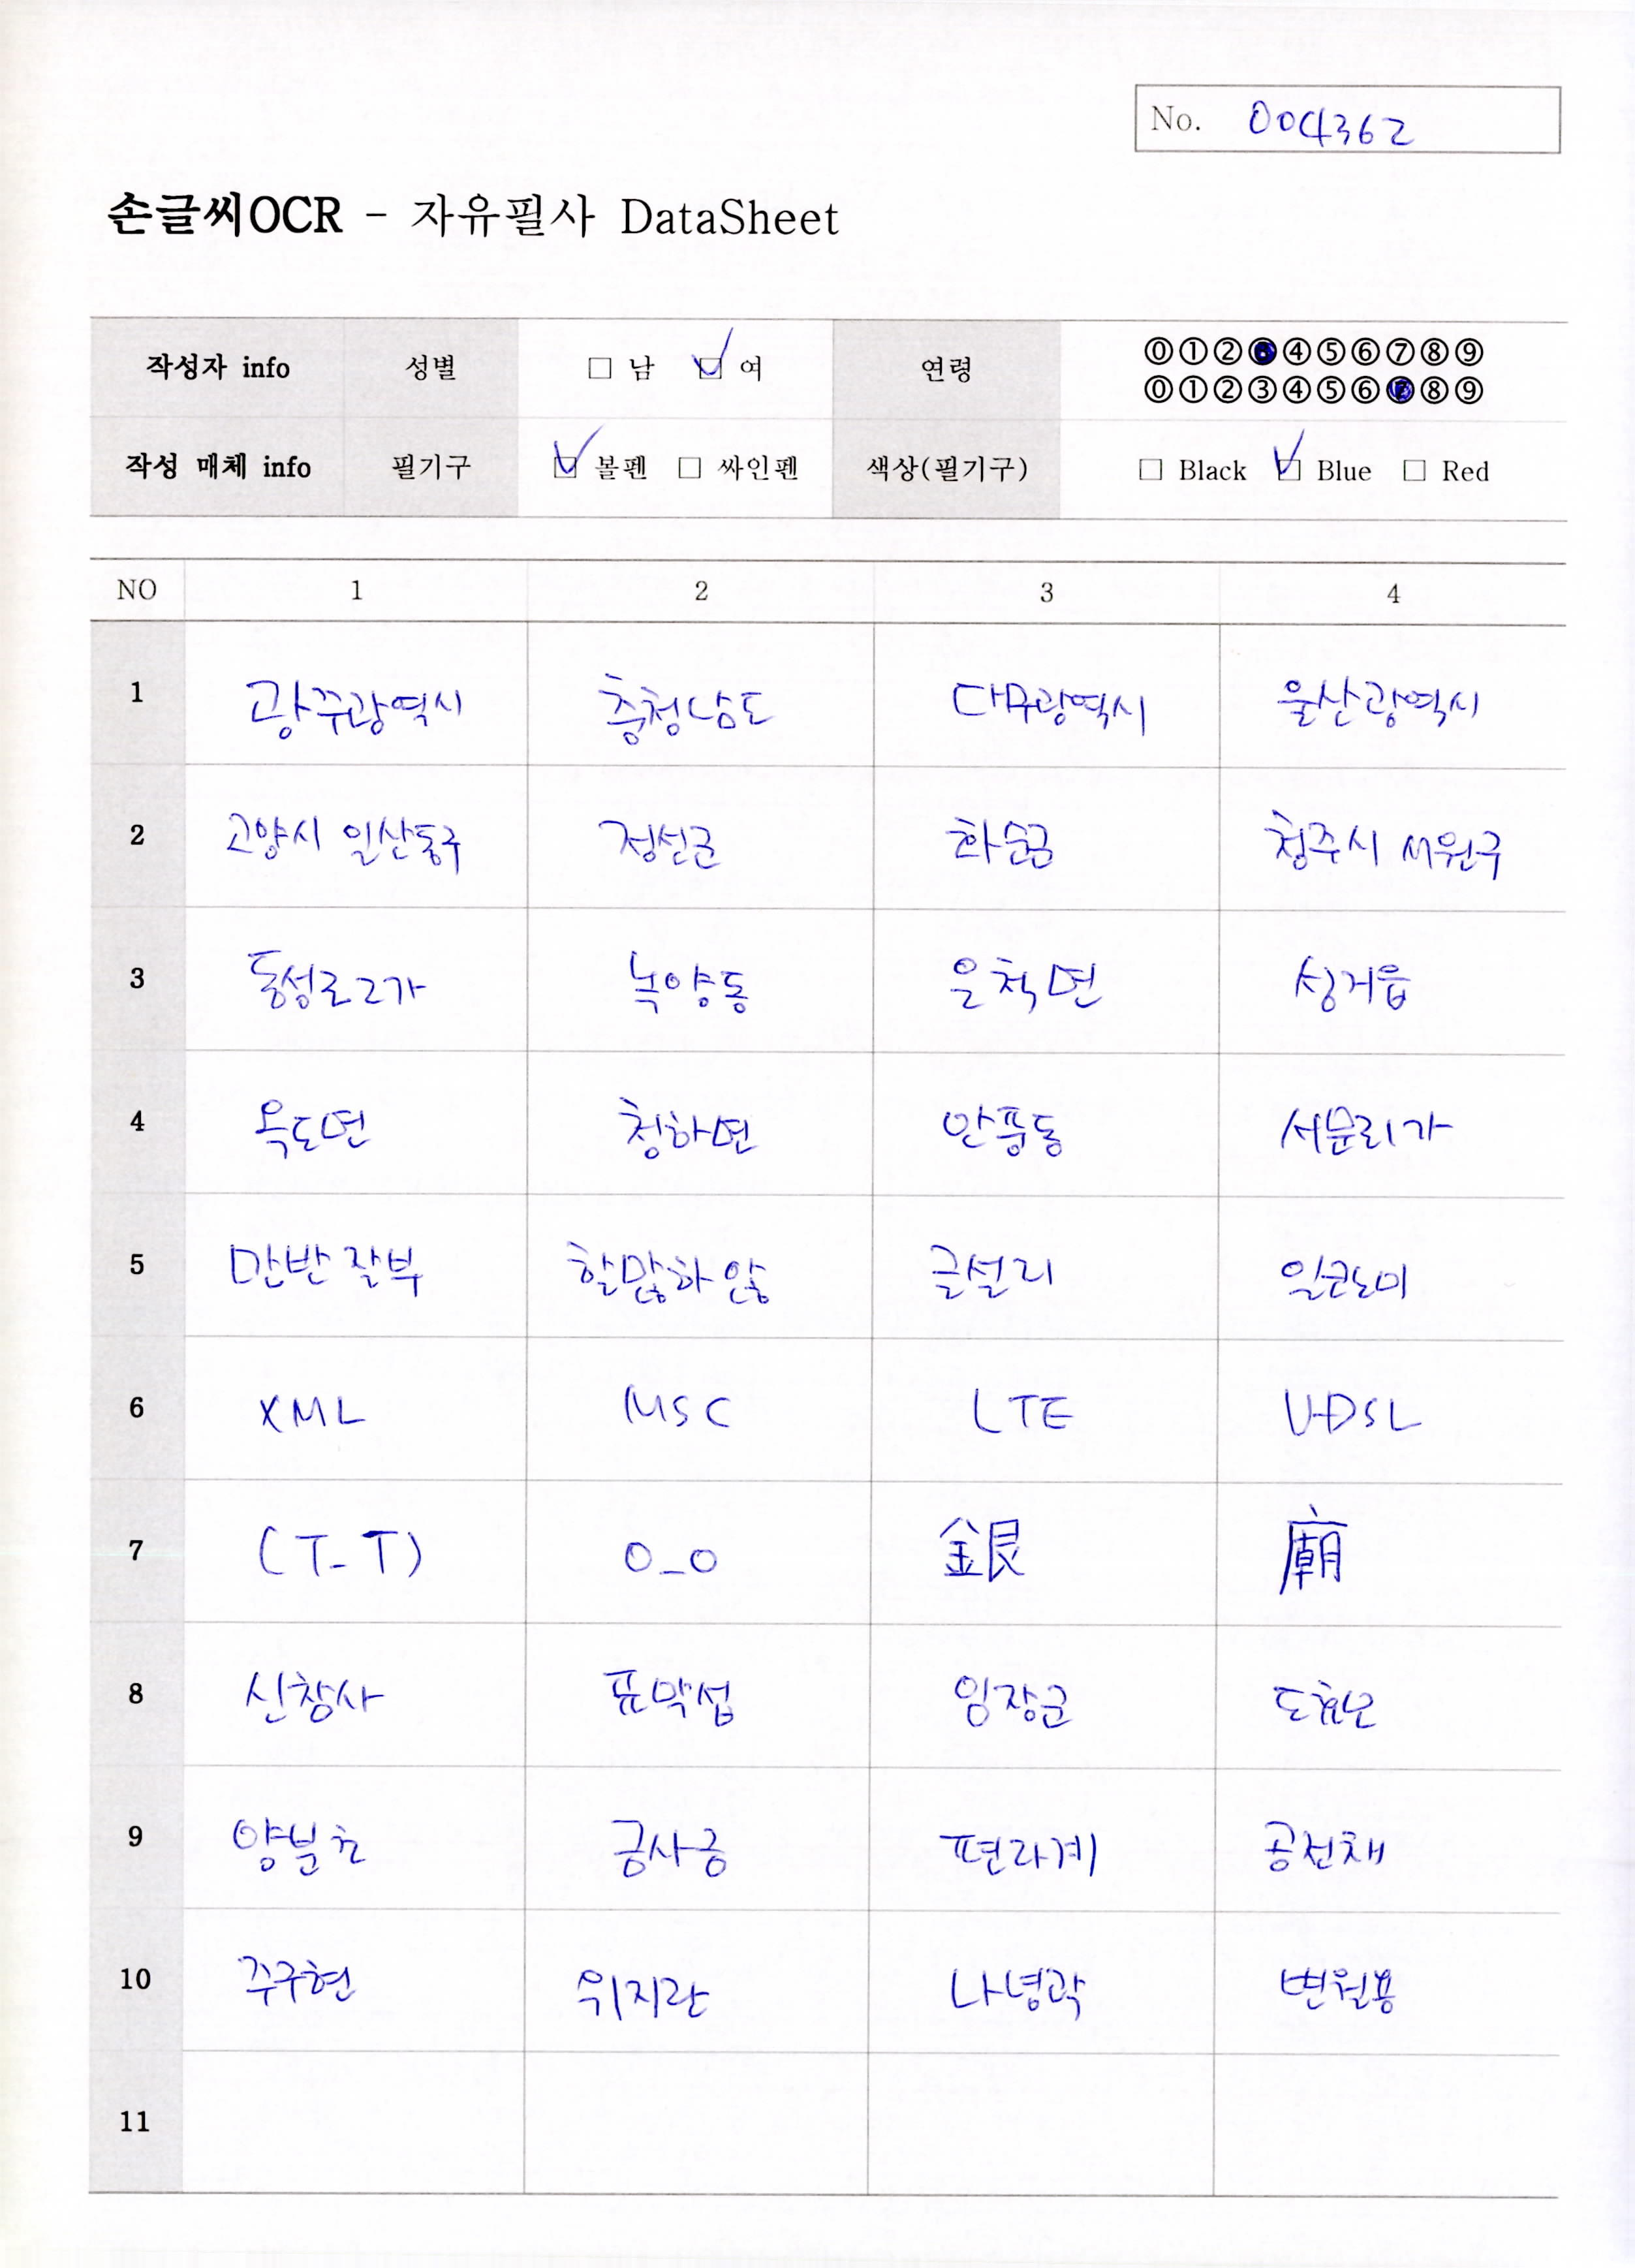 No. 004362
손글씨OCR - 자유필사 DataSheet
작성자 info 성별 □ 남 ☑ 여 연령 ⓪①②③④⑤⑥⑦⑧⑨
⓪①②③④⑤⑥⑦⑧⑨
작성 매체 info 필기구 ☑ 볼펜 □ 싸인펜 색상(필기구) □ Black ☑ Blue □ Red
NO 1 2 3 4
1 광주광역시 충청남도 대구광역시 울산광역시
2 고양시 일산동구 정선군 화순군 청주시 서원구
3 동성로2가 녹양동 은척면 성거읍
4 옥도면 청하면 안풍동 서문리가
5 만반잘부 할많하않 글설리 일코노미
6 XML MSC LTE VDSL
7 (T_T) O_O 銀 廟
8 신창사 표막섭 임장군 도효모
9 양분초 궁사긍 편라계 공전채
10 주구현 위지란 나녕곽 변원용
11